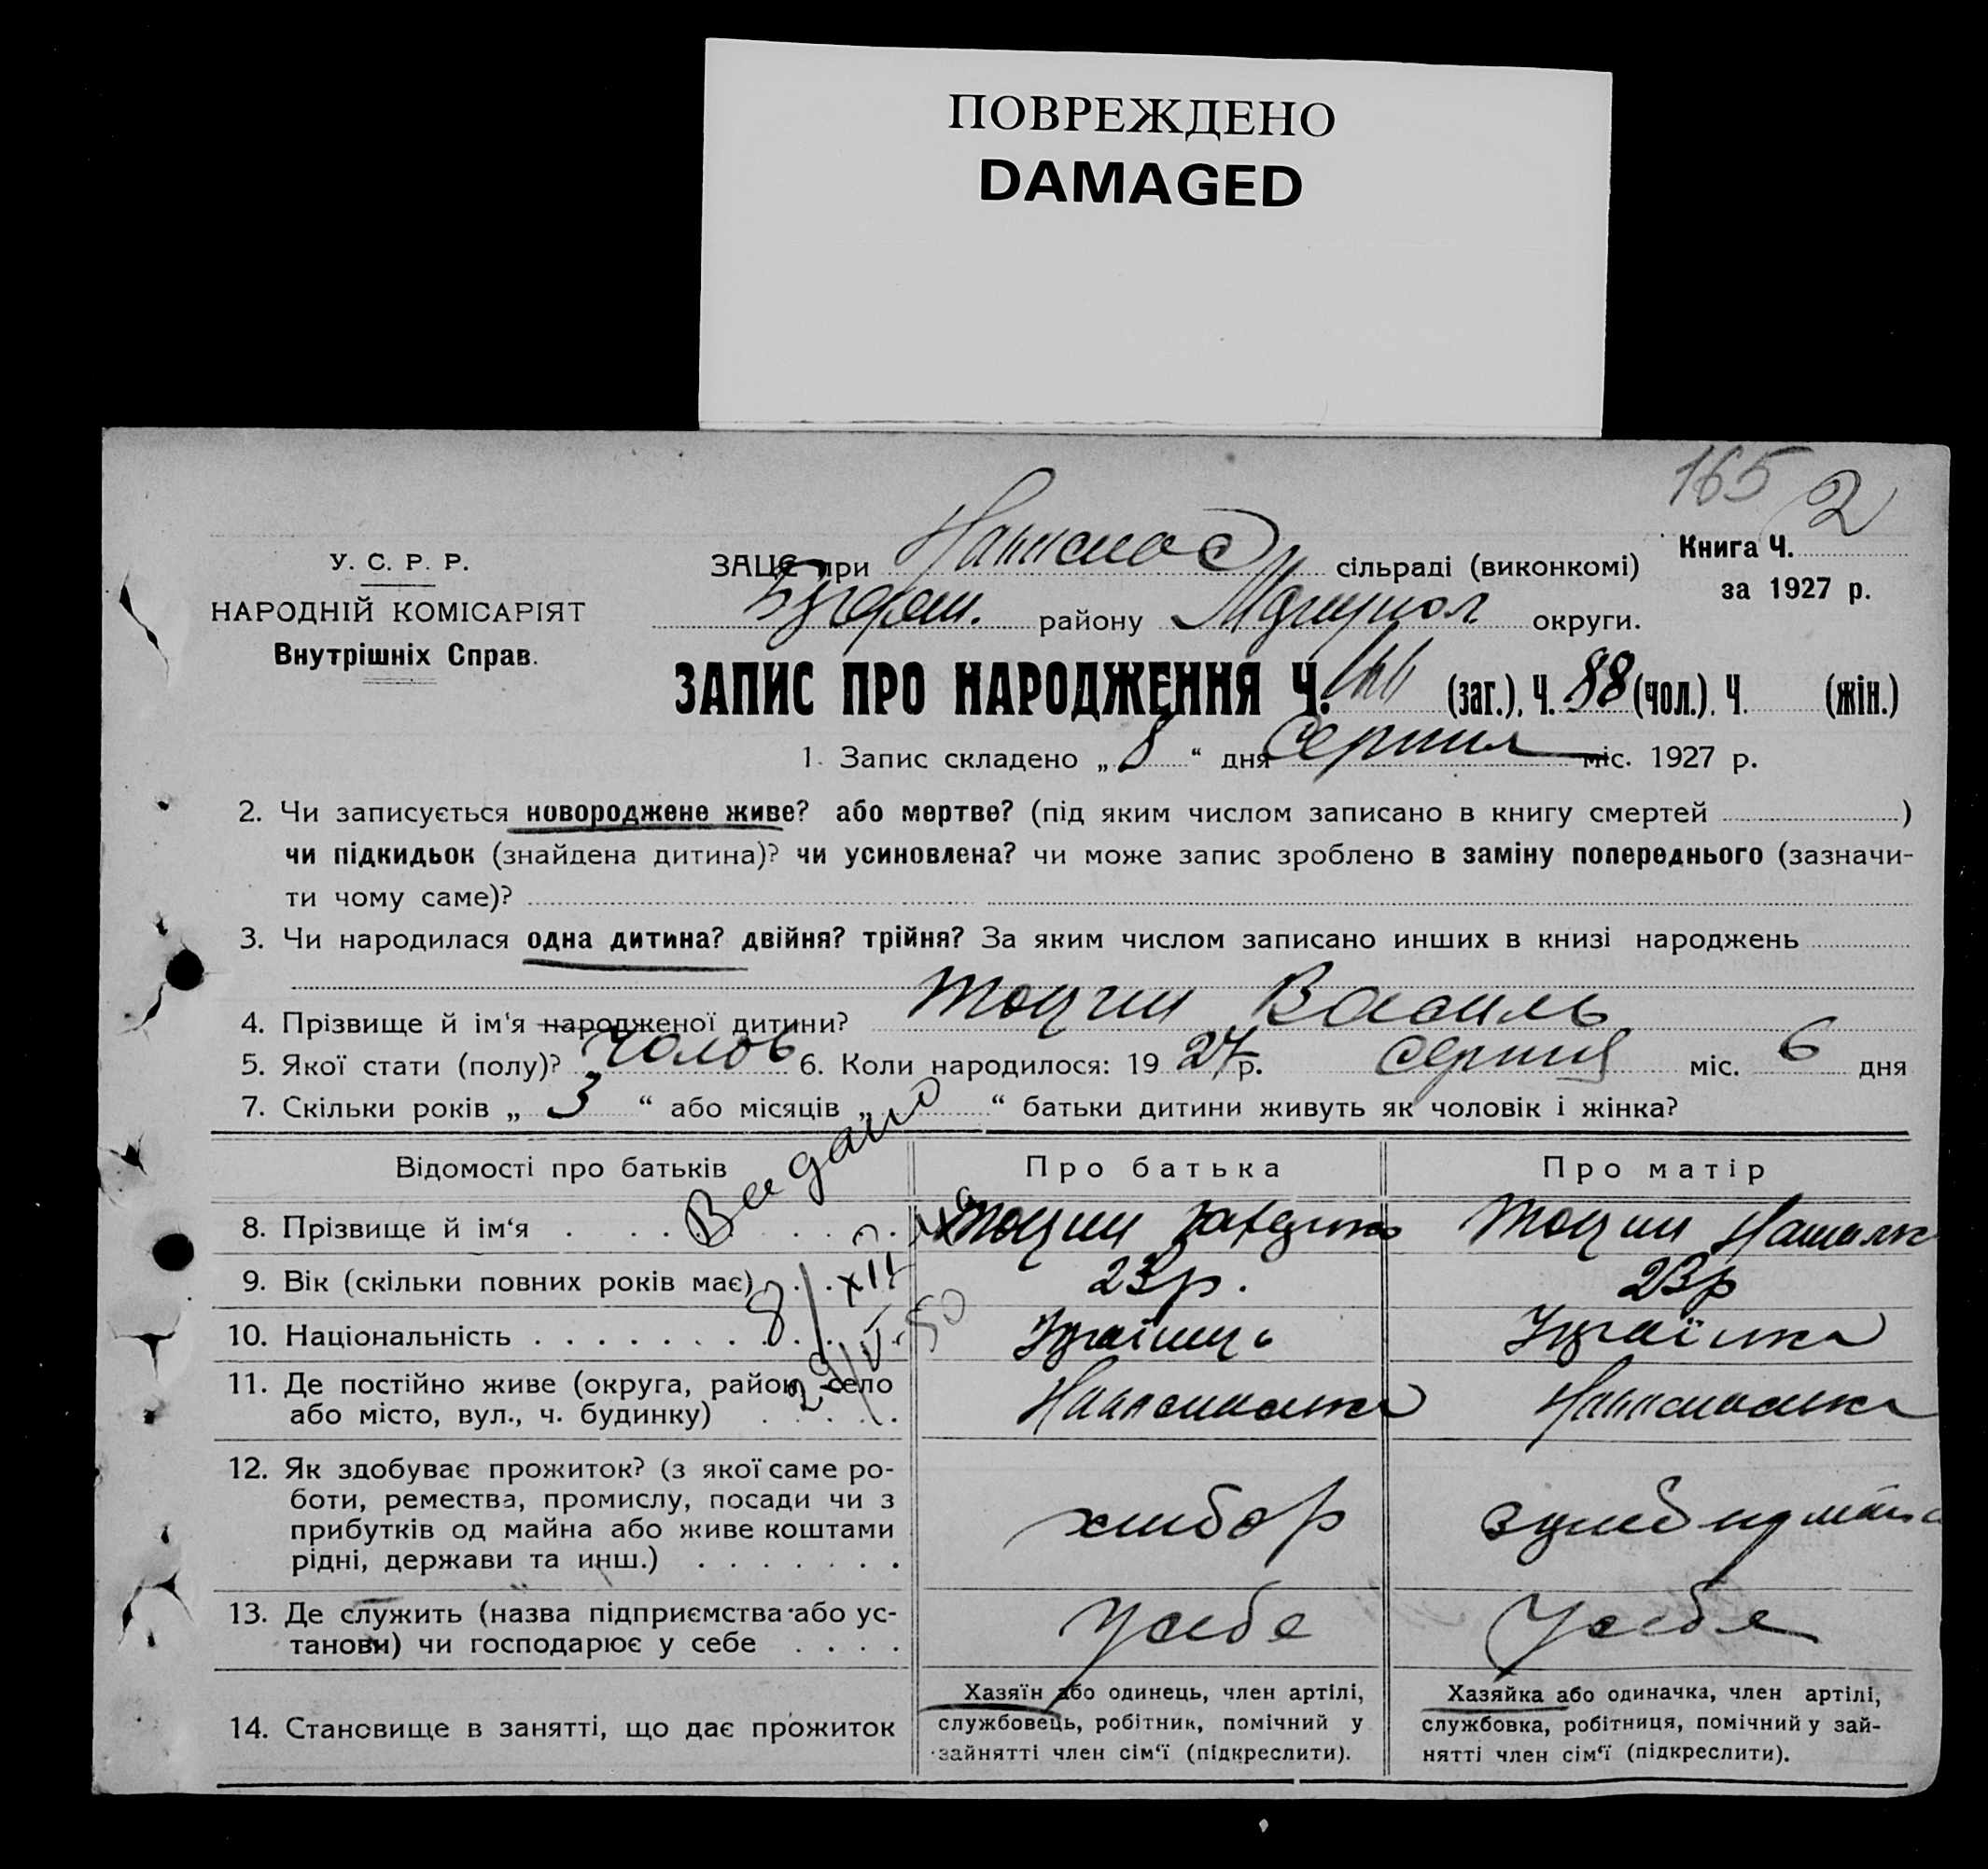 ПОВРЕЖДЕНО
DAMAGED
165 2
У. С. Р. Р.
НАРОДНІЙ КОМІСАРІЯТ
Внутрішніх Справ.
ЗАЦС при сільраді (виконкомі)
Книга Ч.
за 1927 р.
району Маріупол. округи.
ЗАПИС ПРО НАРОДЖЕННЯ Ч. (заг.). Ч. 88 (чол.). Ч. (жін.)
1. Запис складено „ 8 “ дня Серпня міс. 1927 р.
2. Чи записується новороджене живе? або мертве? (під яким числом записано в книгу смертей )
чи підкидьок (знайдена дитина)? чи усиновлена? чи може запис зроблено в заміну попереднього (зазначи-
ти чому саме)?
3. Чи народилася одна дитина? двійня? трійня? За яким числом записано инших в книзі народжень
4. Прізвище й ім'я народженої дитини? Василь
5. Якої стати (полу)? Чолов 6. Коли народилося: 19 27 р. Серпня міс. 6 дня
7. Скільки років „ 3 “ або місяців „ “ батьки дитини живуть як чоловік і жінка?
Відомості про батьків Про батька Про матір
Видано
8. Прізвище й ім‘я
9. Вік (скільки повних років має) 23р. 23р
10. Національність Українець Українка
11. Де постійно живе (округа, район, село
або місто, вул., ч. будинку)
12. Як здобуває прожиток? (з якої саме ро-
боти, ремества, промислу, посади чи з
прибутків од майна або живе коштами
рідні, держави та инш.) хлібор
13. Де служить (назва підприємства або ус-
танови) чи господарює у себе У себе У себе
14. Становище в занятті, що дає прожиток
Хазяїн або одинець, член артілі,
службовець, робітник, помічний у
зайнятті член сім‘ї (підкреслити).
Хазяйка або одиначка, член артілі,
службовка, робітниця, помічний у зай-
нятті член сім‘ї (підкреслити).